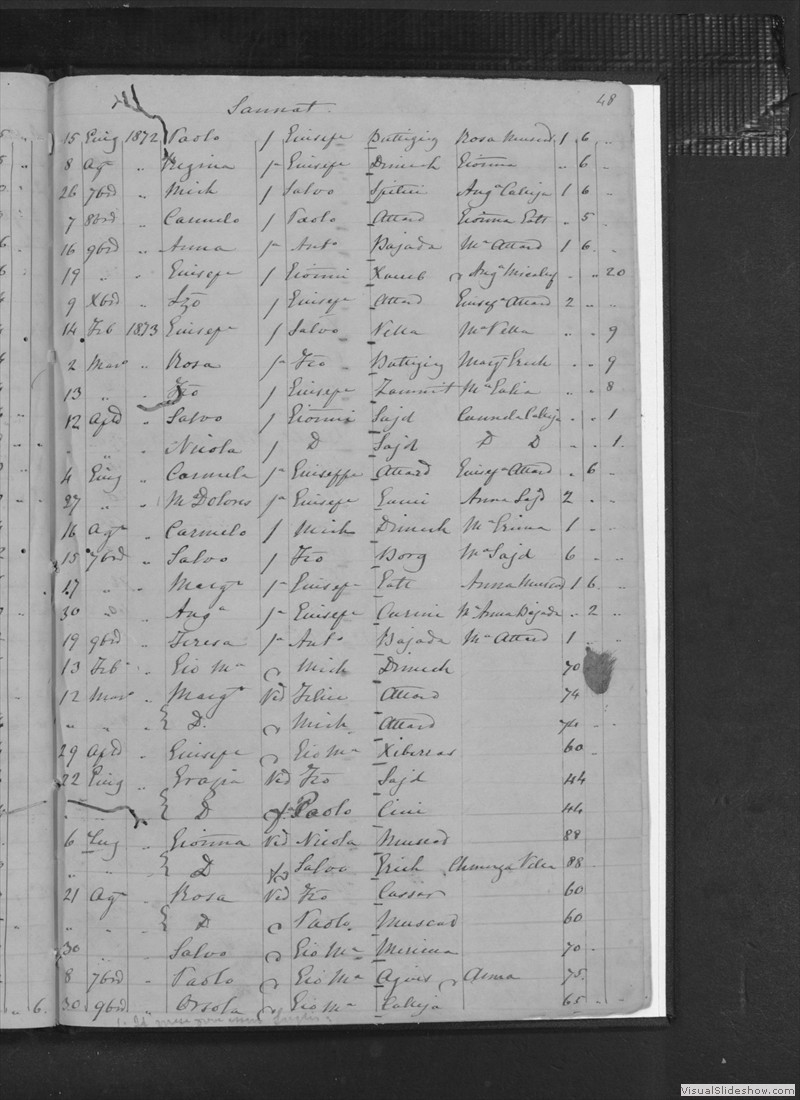 48
Sannat.
15 Giug 1872 Paolo f Giusepe Buttigieg Rosa Muscad 1 6 "
8 Agto " Regina f Giusepe Dimech Gionna " 6 "
26 7bre " Mich f Salvo Spiteri Anga Cabuja 1 6 "
7 8bre " Carmelo f Paolo Attard Gionna " 5 "
16 9bre " Anna f Anto Bajada Ma Attard 1 6 "
19 " " Giusepe f Gionni Xaueb Anga Micalef " " 20
9 Xbre " Fco f Giusepe Attard Giusepa Attard 2 " "
14 Feb 1873 Giusepe f Salvo Vella Ma Vella " 9
2 Mar " Rosa f Fco Buttigieg Marga Grech " 9
13 " " Fco f Giusepe Zammit Ma " 8
12 Aple " Salvo f Gionni Sajd Cabuja " 1
" " " Nicola f D Sajd D D " 1
4 Giug " Carmela f Giuseppe Attard Giusepa Attard " 6 "
27 " " Ma Dolores f Giusepe Anna Sajd 2 " "
16 Agto " Carmelo f Mich Dimech Ma Grima 1 " "
15 7bre " Salvo f Fco Borg Ma Sajd 6 " "
17 " " Marga f Giusepe Anna Muscad 1 6 "
30 " " Anga f Giusepe Ma Anna Bajada " 2 "
19 9bre " Teresa f Anto Bajada Ma Attard 1 " "
13 Feb " Gio Ma Mich Dimech 70
12 Mar " Marga Ved Felice Attard 74
" " { D. Mich Attard 74
29 Aple " Giusepe Gio Ma Xiberras 60
22 Giug " Grazia Ved Fco Sajd 44
" " { D f Paolo Cini 44
6 Lug " Gionna Ved Nicola Muscad 88
" " { D Salvo Grech Vella 88
21 Agto " Rosa Ved Fco Cassar 60
" " { D Paolo Muscad 60
30 " Salvo Gio Ma 70
8 7bre " Paolo Gio Ma Agius Anna 75
6. 30 9bre " Orsola Gio Ma Cabuja 65
VisualSlideshow.com